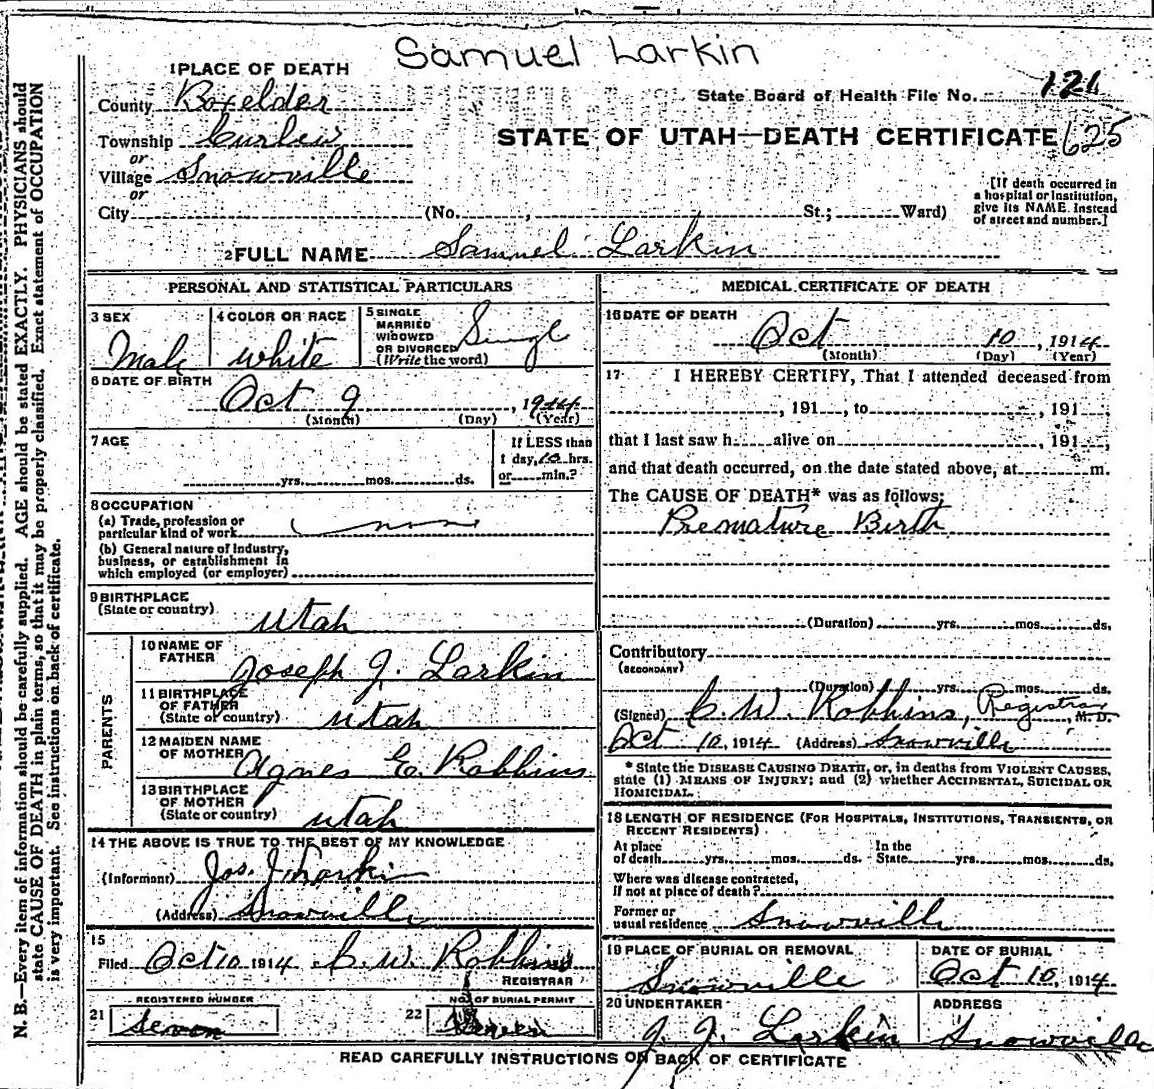 Samuel Larkin
1 PLACE OF DEATH
County Boxelder
State Board of Health File No. 126
Township Curlew
STATE OF UTAH—DEATH CERTIFICATE 625
or
Village Snowville
or
City (No. , St.; Ward)
[If death occurred in
a hospital or institution,
give its NAME instead
of street and number.]
2 FULL NAME Samuel Larkin
PERSONAL AND STATISTICAL PARTICULARS
3 SEX
Male
4 COLOR OR RACE
White
5 SINGLE
MARRIED
WIDOWED
OR DIVORCED
(Write the word)
Single
6 DATE OF BIRTH
Oct 9 , 1914
(Month) (Day) (Year)
7 AGE
yrs. mos. ds.
If LESS than
1 day, 10 hrs.
or min.?
8 OCCUPATION
(a) Trade, profession or
particular kind of work none
(b) General nature of industry,
business, or establishment in
which employed (or employer)
9 BIRTHPLACE
(State or country) Utah
PARENTS
10 NAME OF
FATHER Joseph J. Larkin
11 BIRTHPLACE
OF FATHER
(State or country) Utah
12 MAIDEN NAME
OF MOTHER Agnes E. Robbins
13 BIRTHPLACE
OF MOTHER
(State or country) Utah
14 THE ABOVE IS TRUE TO THE BEST OF MY KNOWLEDGE
(Informant) Jos. J. Larkin
(Address) Snowville
15
Filed Oct 10 1914 C. W. Robbins
REGISTRAR
REGISTERED NUMBER
21 Seven
NO. OF BURIAL PERMIT
22
MEDICAL CERTIFICATE OF DEATH
16 DATE OF DEATH
Oct 10 , 1914
(Month) (Day) (Year)
17 I HEREBY CERTIFY, That I attended deceased from
, 191 , to , 191 ,
that I last saw h alive on , 191 ,
and that death occurred, on the date stated above, at m.
The CAUSE OF DEATH* was as follows:
Premature Birth
(Duration) yrs. mos. ds.
Contributory
(SECONDARY)
(Duration) yrs. mos. ds.
(Signed) C. W. Robbins, Registrar, M.D.
Oct 10, 1914 (Address) Snowville
* State the DISEASE CAUSING DEATH, or, in deaths from VIOLENT CAUSES,
state (1) MEANS OF INJURY; and (2) whether ACCIDENTAL, SUICIDAL OR
HOMICIDAL.
18 LENGTH OF RESIDENCE (FOR HOSPITALS, INSTITUTIONS, TRANSIENTS, OR
RECENT RESIDENTS)
At place In the
of death yrs. mos. ds. State yrs. mos. ds.
Where was disease contracted,
if not at place of death?
Former or
usual residence Snowville
19 PLACE OF BURIAL OR REMOVAL
Snowville
DATE OF BURIAL
Oct 10, 1914
20 UNDERTAKER
J. J. Larkin
ADDRESS
Snowville
READ CAREFULLY INSTRUCTIONS ON BACK OF CERTIFICATE
N. B.—Every item of information should be carefully supplied. AGE should be stated EXACTLY. PHYSICIANS should
state CAUSE OF DEATH in plain terms, so that it may be properly classified. Exact statement of OCCUPATION
is very important. See instructions on back of certificate.